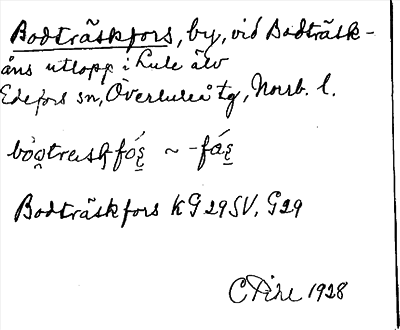 Bodträskfors, by, vid Bodträsk-
åns utlopp i Lule älv
Edefors sn, Överluleå tg, Norrb. l.
~
Bodträskfors KG29SV, G29
1928